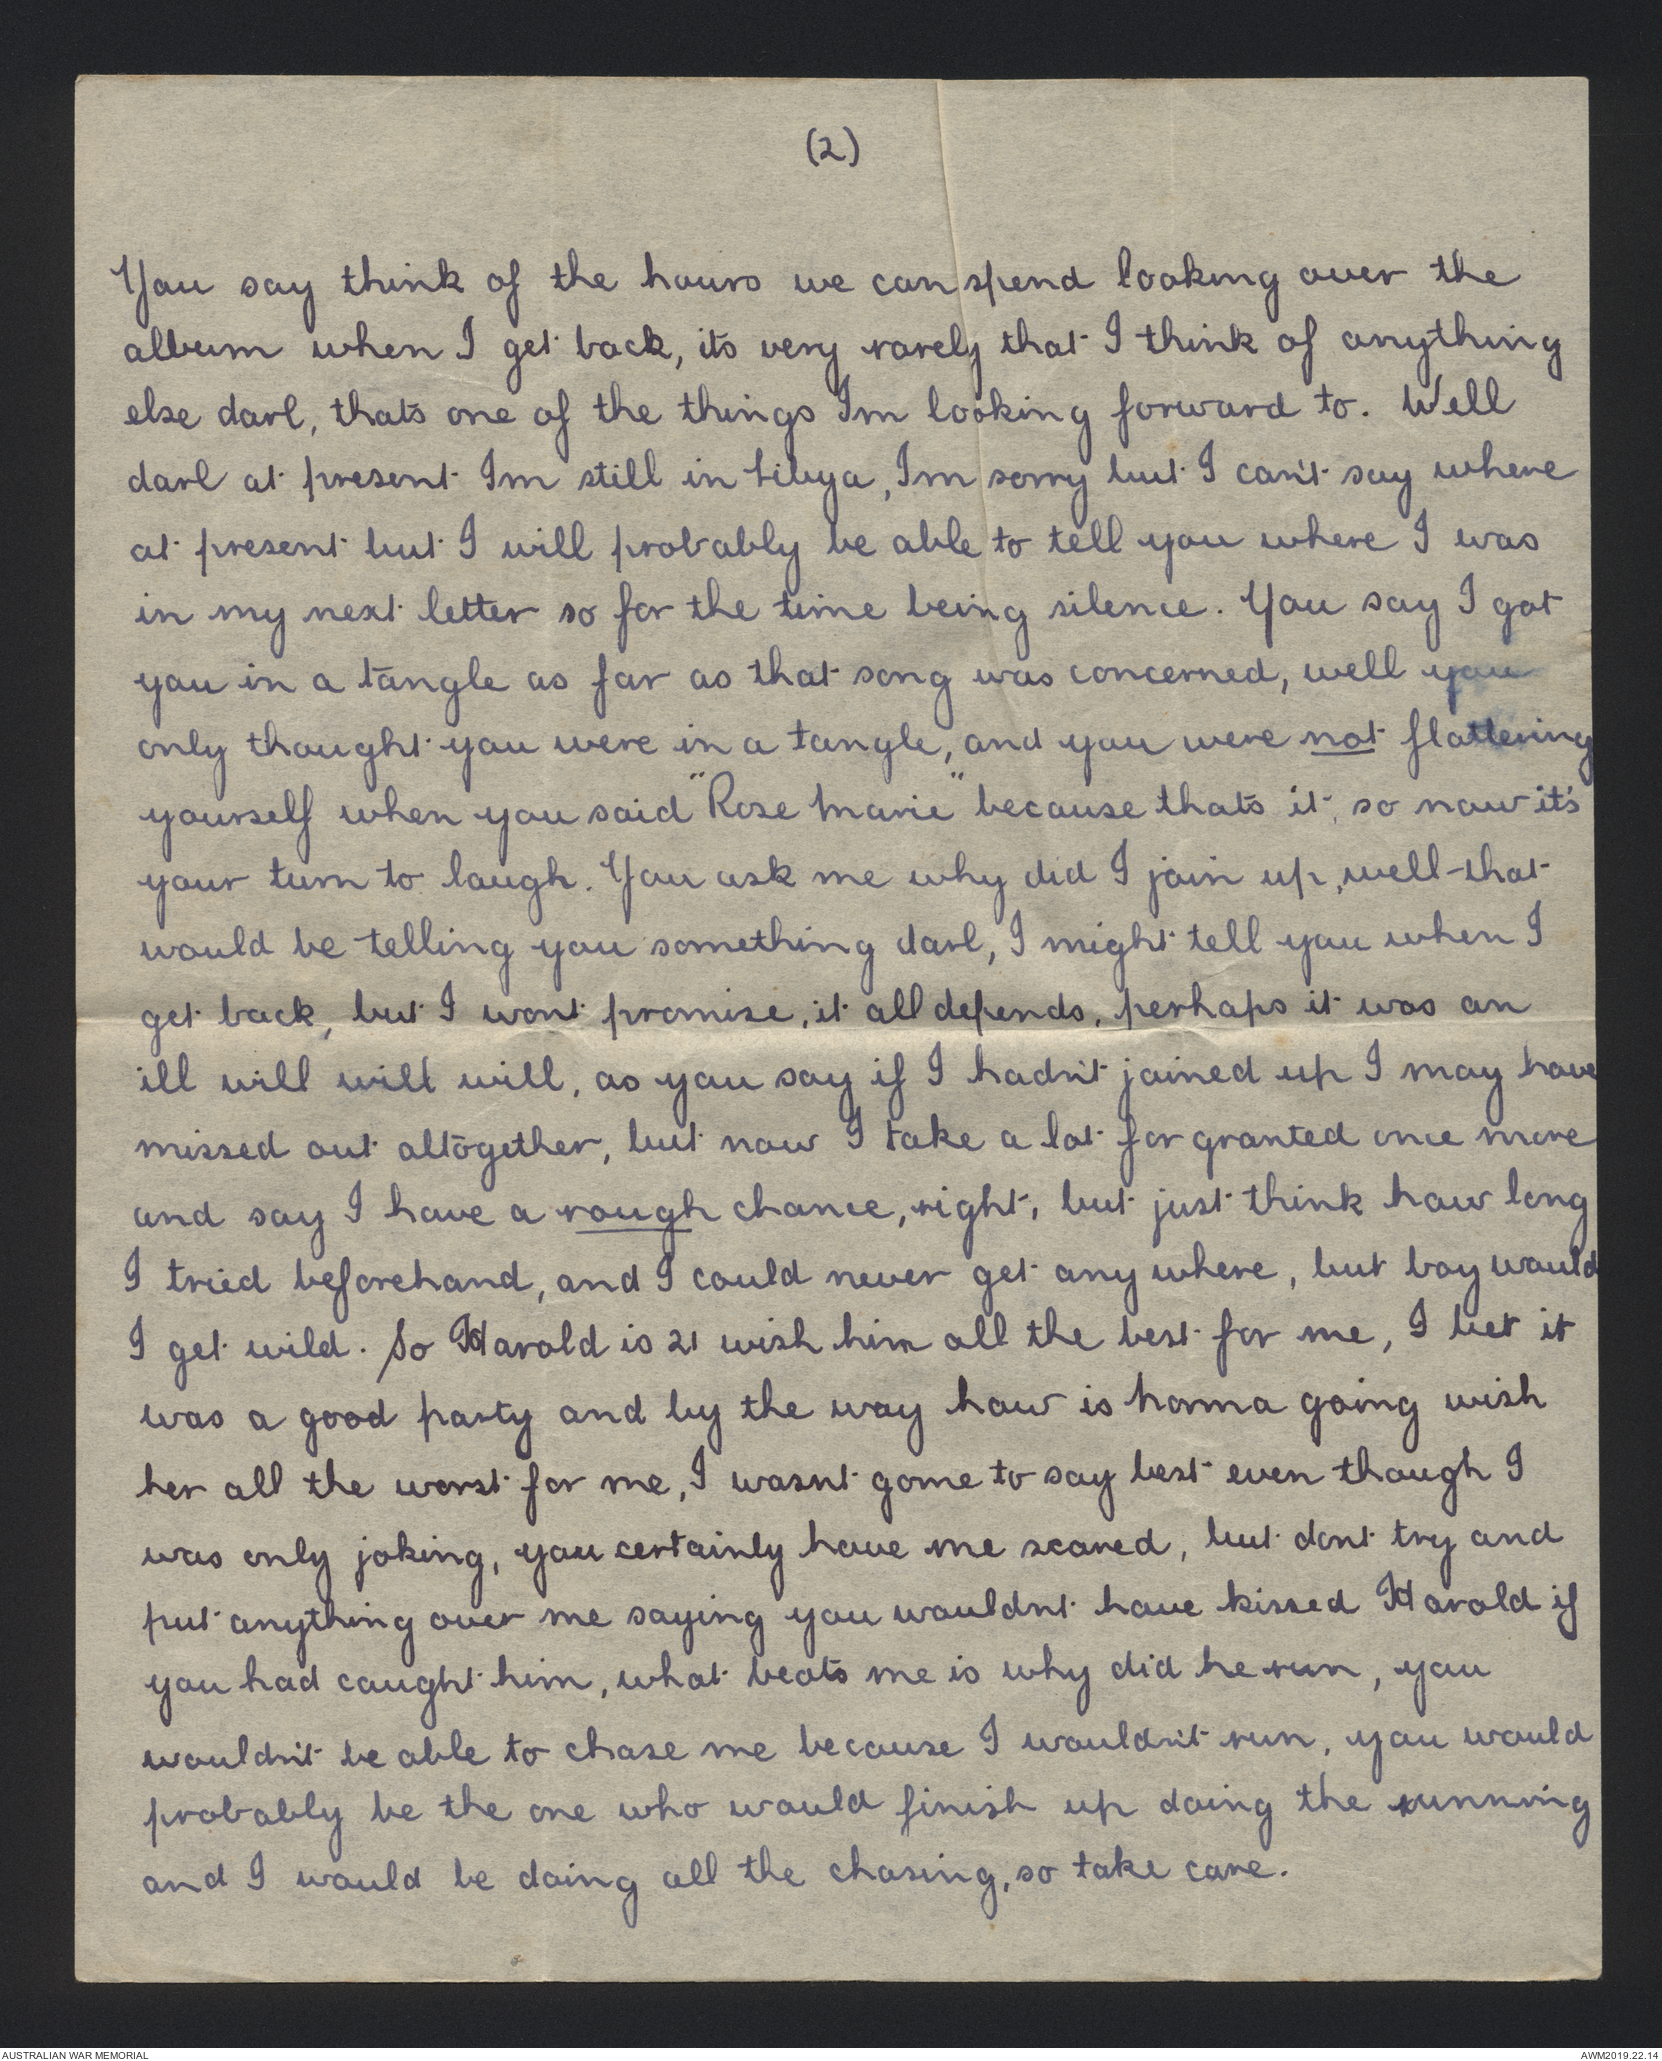 (2)
You say think of the hours we can spend looking over the
album when I get back, its very rarely that I think of anything
else darl, thats one of the things Im looking forward to. Well
darl at present Im still in Libya, Im sorry but I can't say where
at present but I will probably be able to tell you where I was
in my next letter so for the time being silence. You say I got
you in a tangle as far as that song was concerned, well you
only thought you were in a tangle, and you were not flattering
yourself when you said "Rose Marie" because thats it, so now it's
your turn to laugh. You ask me why did I join up, well that
would be telling you something darl, I might tell you when I
get back, but I wont promise, it all depends, perhaps it was an
ill will will will, as you say if I hadn't joined up I may have
missed out altogether, but now I take a lot for granted once more
and say I have a rough chance, right, but just think how long
I tried beforehand, and I could never get any where, but boy would
I get wild. So Harold is 21 wish him all the best for me, I bet it
was a good party and by the way how is hanging going wish
her all the worst for me, I wasnt gome to say best even though I
was only joking, you certainly have me scared, but dont try and
put anything over me saying you wouldnt have kissed Harold if
you had caught him, what beats me is why did he run, you
wouldn't be able to chase me because I wouldn't run, you would
probably be the one who would finish up doing the running
and I would be doing all the chasing, so take care.
AUSTRALIAN WAR MEMORIAL
AWM2019.22.14